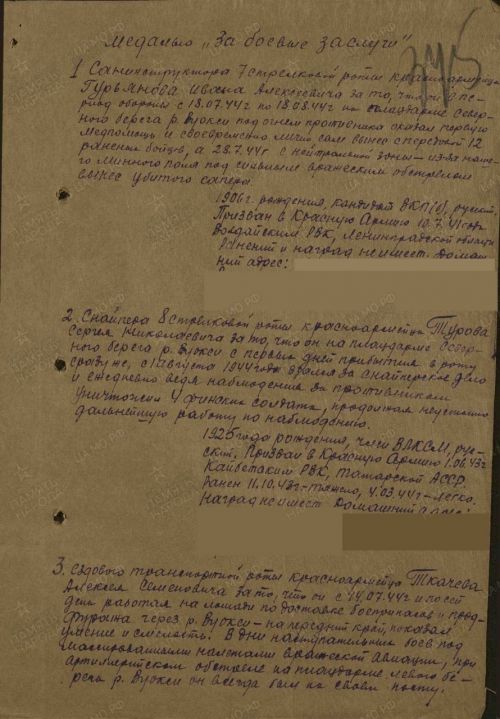 Медалью "За боевые заслуги"
375
1 Санинструктора 7 стрелковой роты красноармейца
Гурьянова Ивана Алексеевича за то, что он в пе-
риод обороны с 18.07.44г по 18.08.44г на плацдарме север-
ного берега р. Вуокси под огнем противника оказал первую
медпомощь и своевременно лично сам вынес с передовой 12
раненых бойцов, а 28.7.44г с нейтральной зоны - из-за наше-
го минного поля под сильным вражеским обстрелом
вынес убитого сапера
1906г. рождения, кандидат ВКП(б), русский,
Призван в Красную Армию 10.7.41 года
РВК, Ленинградской области
Ранений и наград не имеет. Домаш-
ний адрес:
2. Снайпера 8 стрелковой роты красноармейца Турова
Сергея Николаевича за то, что он на плацдарме север-
ного берега р. Вуокси с первых дней прибытия в роту
сразу же, с 1 августа 1944 года взялся за снайперское дело
и ежедневно ведя наблюдения за противником
уничтожил 4 финских солдата, продолжая неустанно
дальнейшую работу по наблюдению.
1925 года рождения, член ВЛКСМ, рус-
ский. Призван в Красную Армию 1.06.43г
Кайбицким РВК, Татарской АССР.
Ранен 11.10.43г - тяжело, 4.03.44г - легко.
Наград не имеет Домашний адрес:
3. Ездового транспортной роты красноармейца Ткачева
Алексея Семеновича за то, что он с 14.07.44г и по сей
день работал на лошади по доставке боеприпасов и прод-
фуража через р. Вуокси - на передний край, показал
умение и смелость. В дни наступательных боев под
массированными налетами вражеской авиации, при
артиллерийском обстреле на плацдарме левого бе-
рега р. Вуокси он всегда был на своем посту.